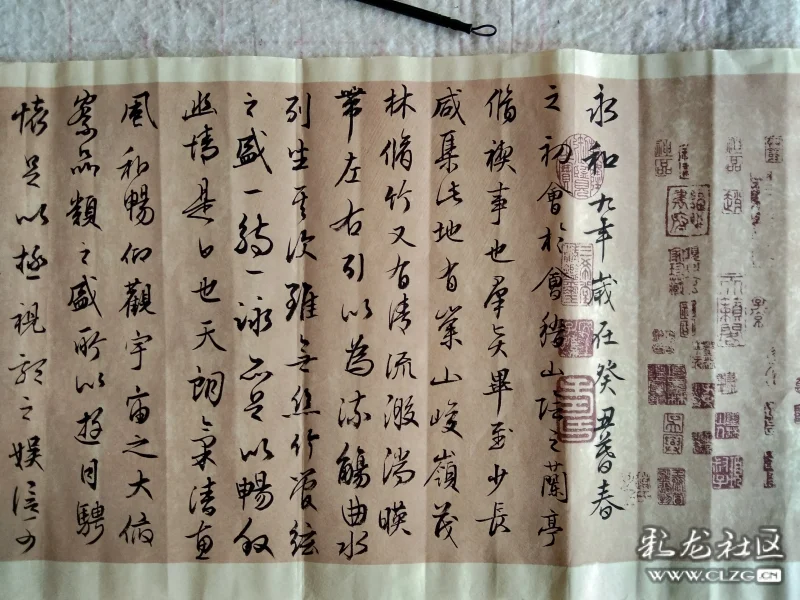 永和九年歲在癸丑暮春
之初會於會稽山陰之蘭亭
脩禊事也羣賢畢至少長
咸集此地有崇山峻嶺茂
林脩竹又有清流激湍映
帶左右引以為流觴曲水
列坐其次雖無絲竹管絃
之盛一觴一詠亦足以暢敘
幽情是日也天朗氣清惠
風和暢仰觀宇宙之大俯
察品類之盛所以遊目騁
懷足以極視聽之娛信可
彩龙社区
WWW.CLZG.CN